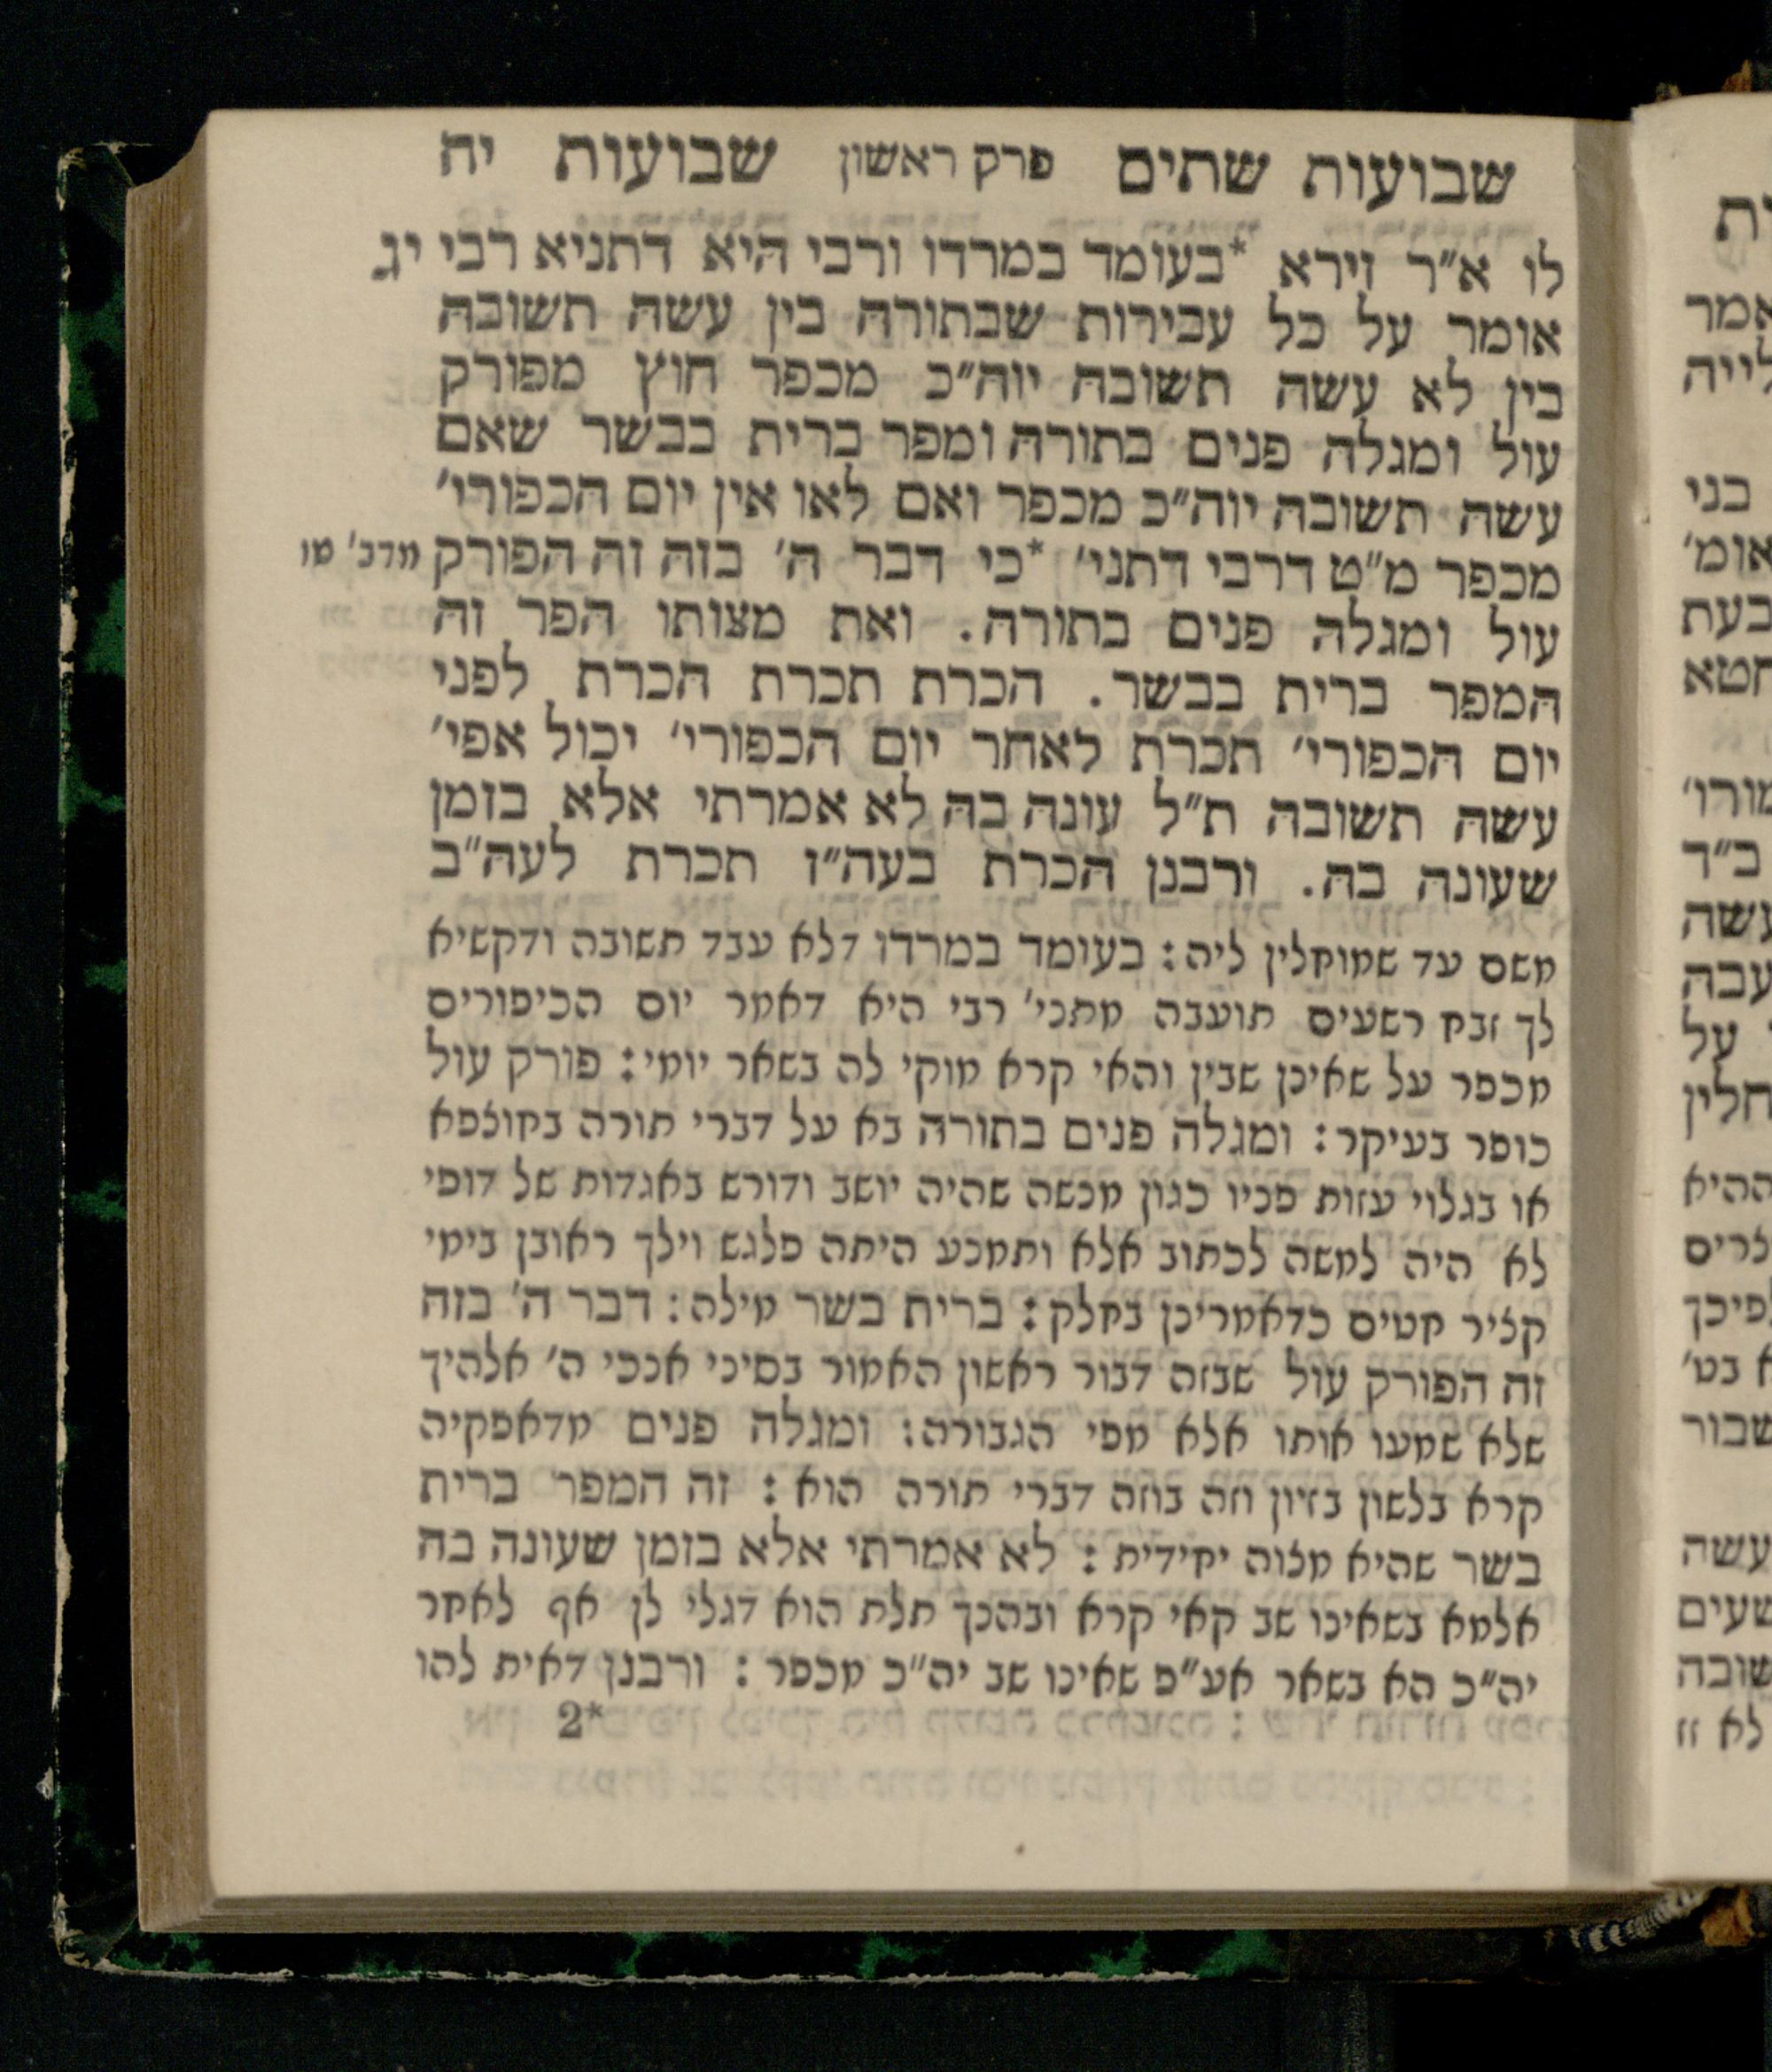 שבועות שתים פרק ראשון שבועות יח
לו א״ר זירא *בעומד במרדו ורבי היא דתניא רבי יג
אומר על כל עבירות שבתורה בין עשה תשובה
בין לא עשה תשובה יוה״כ מכפר חוץ מפורק
עול ומגלה פנים בתורה ומפר ברית בבשר שאם
עשה תשובה יוה״כ מכפר ואם לאו אין יום הכפורי׳
מכפר מ״ט דרבי דתני׳ *כי דבר ה׳ בזה זה הפורק מדב׳ טו
עול ומגלה פנים בתורה. ואת מצותו הפר זה
המפר ברית בבשר. הכרת תכרת הכרת לפני
יום הכפורי׳ תכרת לאחר יום הכפורי׳ יכול אפי׳
עשה תשובה ת״ל עונה בה לא אמרתי אלא בזמן
שעונה בה. ורבנן הכרת בעה״ז תכרת לעה״ב
משם עד שמוחלין ליה: בעומד במרדו דלא עבד תשובה ודקשיא
לך זבח רשעים תועבה מתני׳ רבי היא דאמר יום הכיפורים
מכפר על שאינן שבין והאי קרא מוקי לה בשאר יומי: פורק עול
כופר בעיקר: ומגלה פנים בתורה בא על דברי תורה בחוצפא
או בגלוי עזות פניו כגון מנשה שהיה יושב ודורש באגדות של דופי
לא היה למשה לכתוב אלא ותמנע היתה פלגש וילך ראובן בימי
קציר חטים כדאמרינן בחלק: ברית בשר מילה: דבר ה׳ בזה
זה הפורק עול שבזה דבור ראשון האמור בסיני אנכי ה׳ אלהיך
שלא שמעו אותו אלא מפי הגבורה: ומגלה פנים מדאפקיה
קרא בלשון בזיון וזה בוזה דברי תורה הוא: זה המפר ברית
בשר שהיא מצוה יחידית: לא אמרתי אלא בזמן שעונה בה
אלמא בשאינו שב קאי קרא ובהנך תלת הוא דגלי לן אף לאחר
יה״כ הא בשאר אע״פ שאינו שב יה״כ מכפר: ורבנן דאית להו
2*